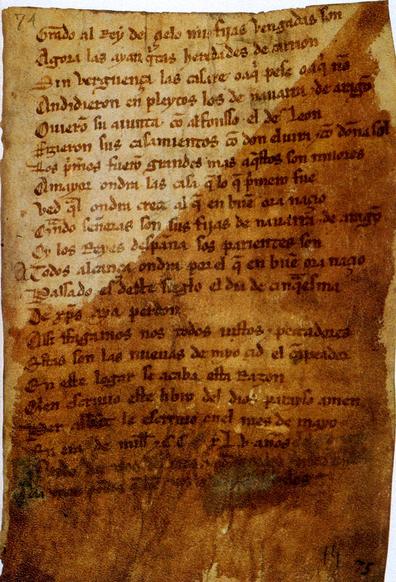 74
Grado al Rey del çielo mis fijas vengadas son
Agora las ayan q̃tas heredades de carrion
Sin verguença las casare o aq̃ pese o aq̃ nõ
Andidieron en pleytos los de nauarra & de aragõ
Ouierõ su aiunta cõ alfonsso el de Leon
Fizieron sus casamientos cõ don eluira & cõ doña sol
Los p̃meros fuerõ grandes mas aq̃stos son miiores
A mayor ondra las casa q̃ lo q̃ p̃mero fue
Ved q̃l ondra creçe al q̃ en buẽ ora naçio
Quãdo señoras son sus fijas de nauarra & de aragõ
Oy los Reyes despaña sos parientes son
A Todos alcança ondra por el q̃ en buẽ ora naçio
Passado es deste sieglo el dia de cinq̃esma
De xp̃s aya perdon
Assi ffagamos nos todos iustos & peccadores
Estas son las nueuas de myo çid el campeador
En este logar se acaba esta Razon
Quien escriuio este libro del dios parayso amen
Per abbat le escriuio enel mes de mayo
En era de mill & .CC xLv. años
75